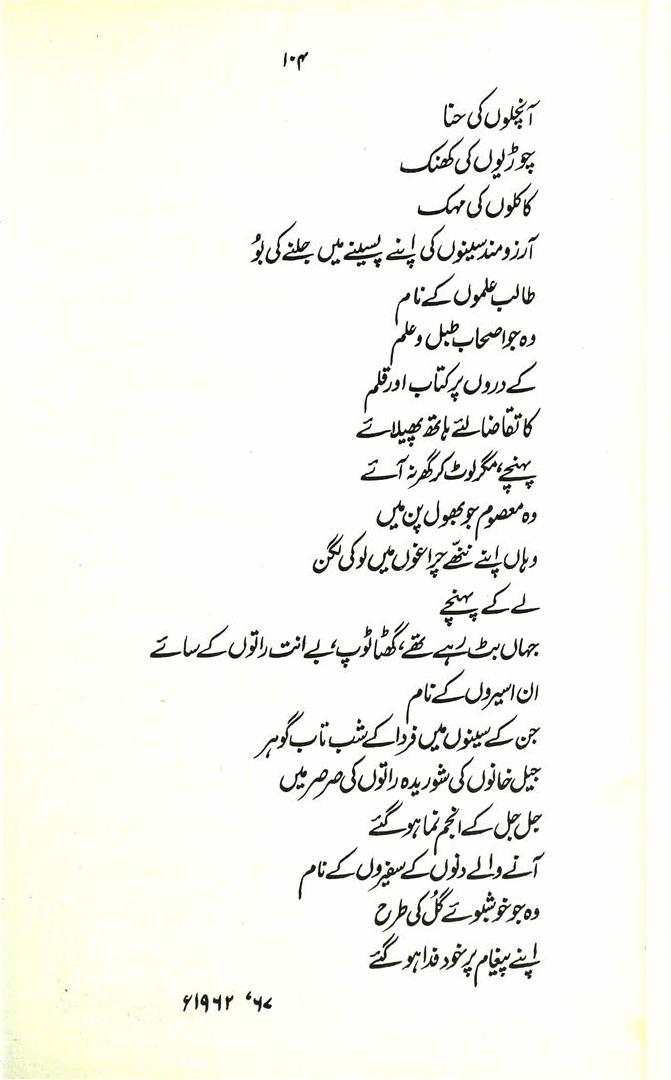 ۱۰۴
آنچلوں کی حنا
چوڑیوں کی کھنک
کاکلوں کی مہک
آرزو مند سینوں کی اپنے پسینے میں جلنے کی بُو
طالب علموں کے نام
وہ جو اصحاب طبل و علم
کے دروں پر کتاب اور قلم
کا تقاضا لئے ہاتھ پھیلائے
پہنچے، مگر لوٹ کر گھر نہ آئے
وہ معصوم جو بھول پن میں
وہاں اپنے ننھّے چراغوں میں لو کی لگن
لے کے پہنچے
جہاں بٹ رہے تھے، گھٹا ٹوپ، بے انت راتوں کے سائے
ان اسیروں کے نام
جن کے سینوں میں فردا کے شب تاب گوہر
جیل خانوں کی شوریدہ راتوں کی صرصر میں
جل جل کے انجم نما ہو گئے
آنے والے دنوں کے سفیروں کے نام
وہ جو خوشبوئے گُل کی طرح
اپنے پیغام پر خود فدا ہو گئے
۶۷ء، ۱۹۶۲ء